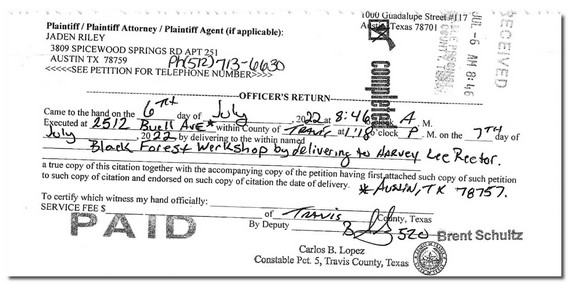 1000 Guadalupe Street #117
Austin, Texas 78701
Plaintiff / Plaintiff Attorney / Plaintiff Agent (if applicable):
JADEN RILEY
3809 SPICEWOOD SPRINGS RD APT 251
AUSTIN TX 78759 Ph(512)713-6630
<<<<<SEE PETITION FOR TELEPHONE NUMBER>>>>>
complete
RECEIVED
JUL -6 AM 8:46
OFFICER'S RETURN
Came to the hand on the 6TH day of July, 2022 at 8:46 A. M.
Executed at 2512 Buell Ave* within County of Travis at 1:18 o'clock P. M. on the 7TH day of
July, 2022 by delivering to the within named
Black Forest Werkshop by delivering to Harvey Lee Rector.
a true copy of this citation together with the accompanying copy of the petition having first attached such copy of such petition
to such copy of citation and endorsed on such copy of citation the date of delivery. * Austin, TX 78757.
To certify which witness my hand officially:
SERVICE FEE $ of Travis County, Texas
PAID
By Deputy 520 Brent Schultz
Carlos B. Lopez
Constable Pct. 5, Travis County, Texas